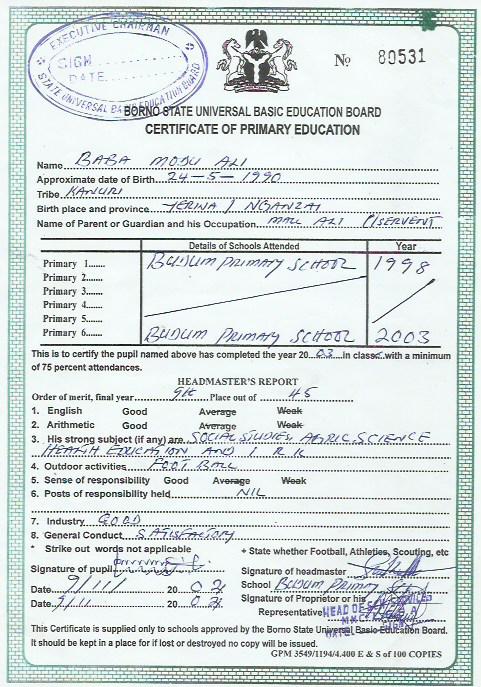 EXECUTIVE CHAIRMAN
SIGN
DATE
STATE UNIVERSAL BASIC EDUCATION BOARD
No 80531
BORNO STATE UNIVERSAL BASIC EDUCATION BOARD
CERTIFICATE OF PRIMARY EDUCATION
Name BABA MODU ALI
Approximate date of Birth 24-5-1990
Tribe KANURI
Birth place and province JERINA / NGANZAI
Name of Parent or Guardian and his Occupation MALL ALI C/SERVENT
Details of Schools Attended Year
Primary 1...... BULDUM PRIMARY SCHOOL 1998
Primary 2......
Primary 3......
Primary 4......
Primary 5......
Primary 6...... BULDUM PRIMARY SCHOOL 2003
This is to certify the pupil named above has completed the year 20 03 in class with a minimum
of 75 percent attendances.
HEADMASTER'S REPORT
Order of merit, final year 9th Place out of 45
1. English Good Average Weak
2. Arithmetic Good Average Weak
3. His strong subject (if any) are SOCIAL STUDIES, AGRIC SCIENCE
HEALTH EDUCATION AND I R K
4. Outdoor activities FOOT BALL
5. Sense of responsibility Good Average Weak
6. Posts of responsibility held NIL
7. Industry GOOD
8. General Conduct SATISFACTORY
* Strike out words not applicable + State whether Football, Athleties, Scouting, etc
Signature of pupil Signature of headmaster
Date 9/11/ 20 04 School Buldum Primary School
Date 9/11 20 04 Signature of Proprietor or his
Representative
HEAD OF
This Certificate is supplied only to schools approved by the Borno State Universal Basic Education Board.
It should be kept in a place for if lost or destroyed no copy will be issued.
GPM 3549/1194/4.400 E & S of 100 COPIES